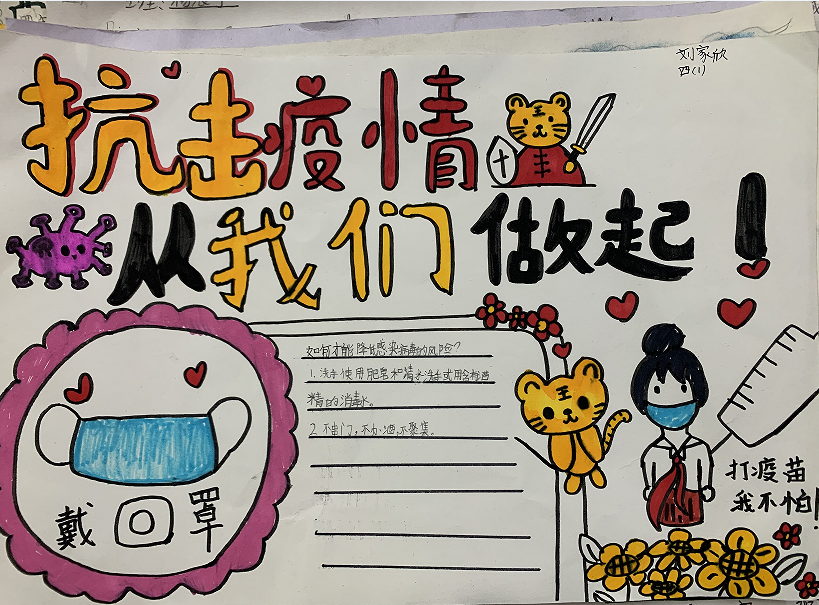 刘家欣
四(1)
抗击疫情
从我们做起！
如何才能降低感染病毒的风险?
1. 洗手使用肥皂和清水洗手或用含有酒
精的消毒水。
2 不出门，不办酒，不聚集。
戴口罩
打疫苗
我不怕!